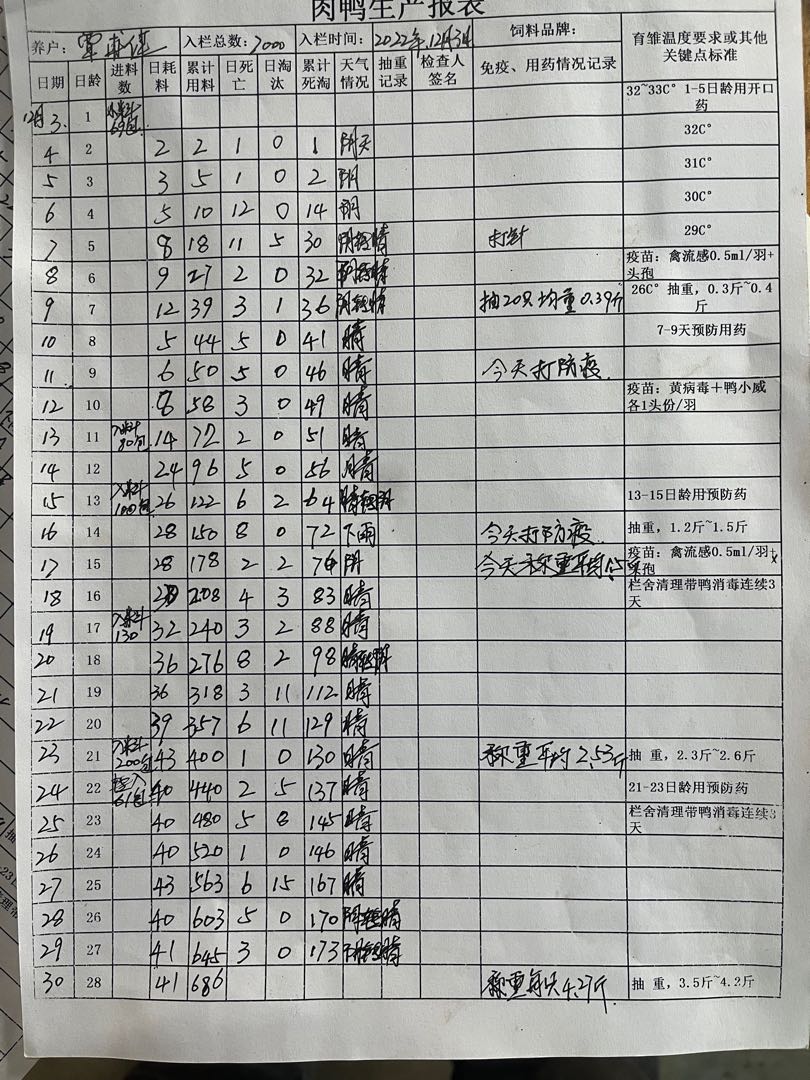 肉鸭生产报表
养户: 覃 入栏总数: 7000 入栏时间: 2022年12月3号 饲料品牌: 育雏温度要求或其他关键点标准
日期 日龄 进料数 日耗料 累计用料 日死亡 日淘汰 累计死淘 天气情况 抽重记录 检查人签名 免疫、用药情况记录
12月3. 1 69包 32~33C° 1-5日龄用开口药
4 2 2 2 1 0 1 阴天 32C°
5 3 3 5 1 0 2 阴 31C°
6 4 5 10 12 0 14 阴 30C°
7 5 8 18 11 5 30 阴转晴 打针 29C°
8 6 9 27 2 0 32 阴转晴 疫苗: 禽流感0.5ml/羽+头孢
9 7 12 39 3 1 36 阴转晴 抽20只均重0.39斤 26C° 抽重, 0.3斤~0.4斤
10 8 5 44 5 0 41 晴 7-9天预防用药
11 9 6 50 5 0 46 晴 今天打防疫.
12 10 8 58 3 0 49 晴 疫苗: 黄病毒+鸭小威各1头份/羽
13 11 入料80包 14 72 2 0 51 晴
14 12 24 96 5 0 56 晴
15 13 入料100包 26 122 6 2 64 晴转阴 13-15日龄用预防药
16 14 28 150 8 0 72 下雨 今天打防疫. 抽重, 1.2斤~1.5斤
17 15 28 178 2 2 76 阴 今天称重平均1.5 疫苗: 禽流感0.5ml/羽+头孢
18 16 208 4 3 83 晴 栏舍清理带鸭消毒连续3天
19 17 入料130 32 240 3 2 88 晴
20 18 36 276 8 2 98 晴转阴
21 19 36 318 3 11 112 晴
22 20 39 357 6 11 129 晴
23 21 入料200包 43 400 1 0 130 晴 称重平均2.53斤 抽 重, 2.3斤~2.6斤
24 22 61包 40 440 2 5 137 晴 21-23日龄用预防药
25 23 40 480 5 8 145 晴 栏舍清理带鸭消毒连续3天
26 24 40 520 1 0 146 晴
27 25 43 563 6 15 167 晴
28 26 40 603 5 0 170 阴转晴
29 27 41 645 3 0 173
30 28 41 686 称重 4.27斤 抽 重, 3.5斤~4.2斤